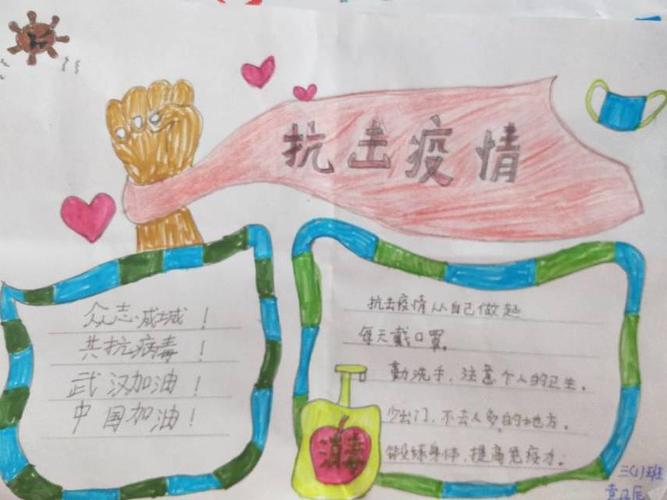 抗击疫情
众志成城！
共抗病毒！
武汉加油！
中国加油！
抗击疫情从自己做起
每天戴口罩。
勤洗手，注意个人的卫生。
少出门，不去人多的地方。
锻炼身体，提高免疫力。
消毒
三(1)班